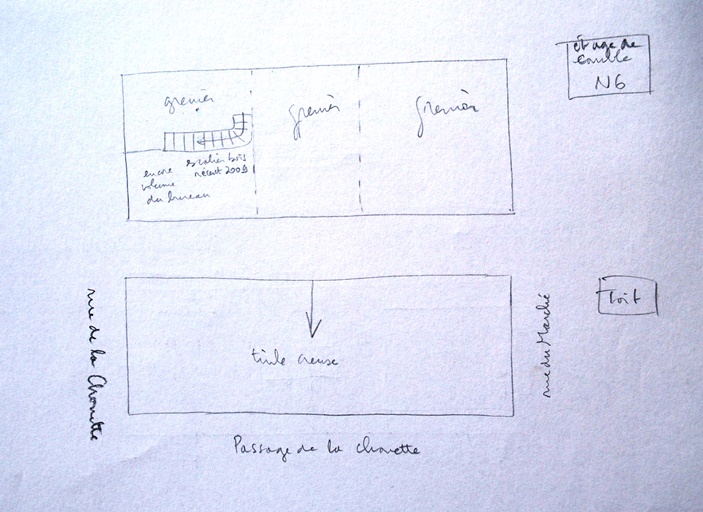 étage de
comble
N6
grenier
grenier
grenier
escalier bois
récent 200
encore
volume
du bureau
toit
rue de la Chouette
rue du Marché
tuile creuse
Passage de la chouette